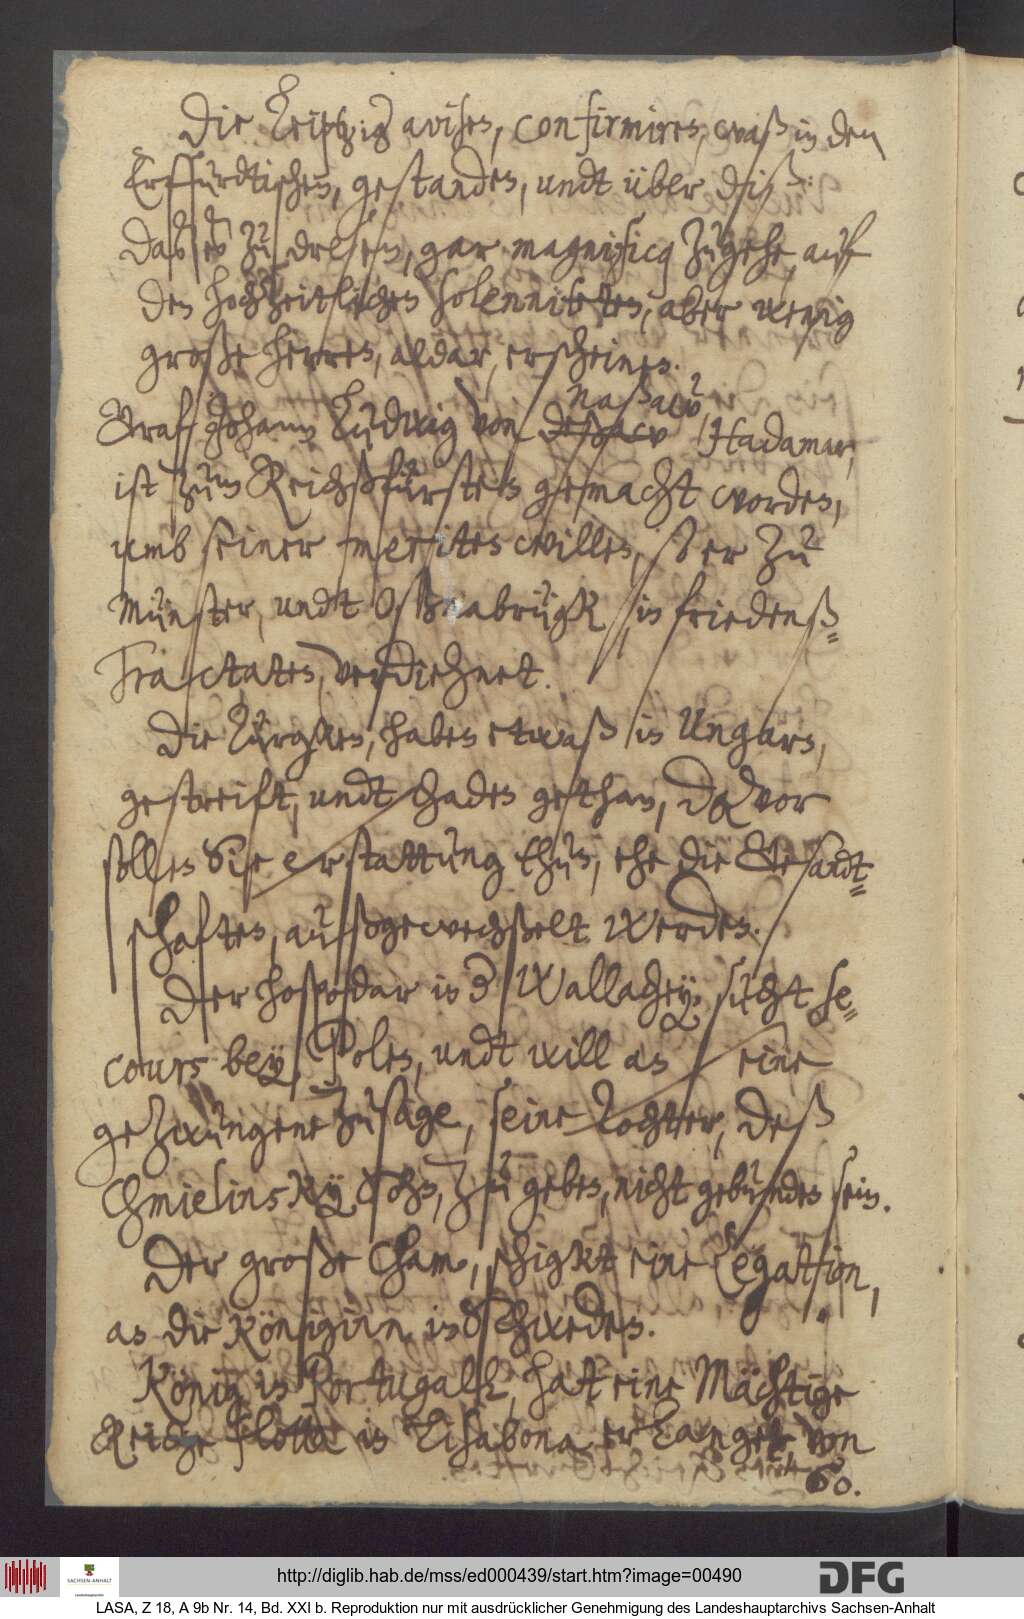 Die Leiptzig avisen, confirmiren, waß in den
Erffurdtischen, gestanden, undt über diß:
daß es zu Dresen, gar magnificq zugehe, auf
den hochzeitlichen solenniteten, aber wenig
große herren, aldar, erscheinen.
Naßaw,
Graf Johann Ludwig von Deßaw Hadamar,
ist zum Reichßfürsten gemacht worden,
umb seiner meriten willen, so er zu
Münster, undt Oßnabrügk, in friedenß-
Tractaten, verdiehnet.
Die Türgken, haben etwaß in Ungarn,
gestreift, undt schaden gethan, Davor
sollen Sie erstattung thun, ehe die Gesandt-
schaften, außgewechßelt werden.
Der hospodar in der Wallachey, sucht se-
cours bey Polen, undt will an eine
gezwungene zusage, seine Tochter, deß
Chmielinsky Sohn, zu geben, nicht gebunden sein.
Der große Cham, schigkt eine Legation,
an die Königinn in Schweden.
König in Portugall, hat eine Mächtige
Reiche flotte in Lisabona erlanget von
60.
http://diglib.hab.de/mss/ed000439/start.htm?image=00490
SACHSEN-ANHALT
Landeshauptarchiv
DFG
LASA, Z 18, A 9b Nr. 14, Bd. XXI b. Reproduktion nur mit ausdrücklicher Genehmigung des Landeshauptarchivs Sachsen-Anhalt